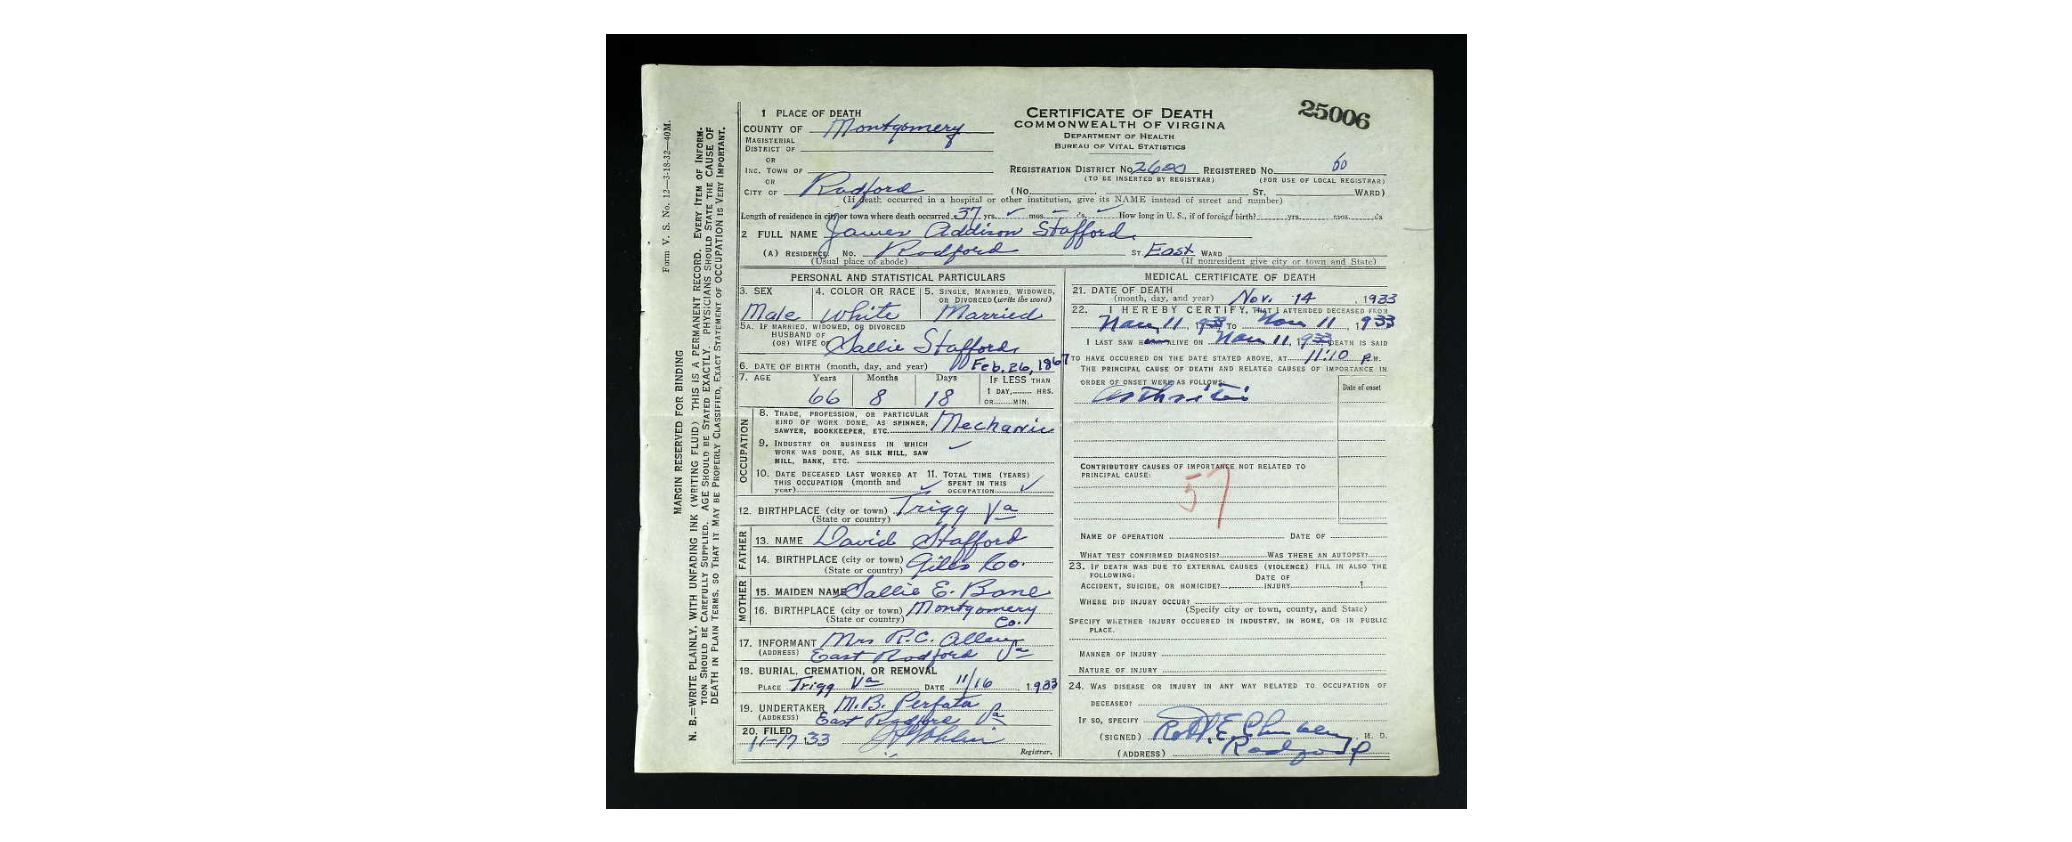 25006
CERTIFICATE OF DEATH
COMMONWEALTH OF VIRGINIA
DEPARTMENT OF HEALTH
BUREAU OF VITAL STATISTICS
1 PLACE OF DEATH
COUNTY OF Montgomery
MAGISTERIAL
DISTRICT OF
OR
INC. TOWN OF
OR
CITY OF Radford
REGISTRATION DISTRICT No. 2600 REGISTERED No. 60
(TO BE INSERTED BY REGISTRAR) (FOR USE OF LOCAL REGISTRAR)
(No. ST. WARD)
(If death occurred in a hospital or other institution, give its NAME instead of street and number)
Length of residence in city or town where death occurred 37 yrs. mos. ds. How long in U. S., if of foreign birth? yrs. mos. ds
2 FULL NAME James Addison Stafford
(A) RESIDENCE. No. Radford ST. East WARD
(Usual place of abode) (If nonresident give city or town and State)
PERSONAL AND STATISTICAL PARTICULARS
3. SEX
Male
4. COLOR OR RACE
White
5. SINGLE, MARRIED, WIDOWED,
OR DIVORCED (write the word)
Married
5A. IF MARRIED, WIDOWED, OR DIVORCED
HUSBAND OF
(OR) WIFE OF Sallie Stafford
6. DATE OF BIRTH (month, day, and year) Feb. 26, 1867
7. AGE Years Months Days IF LESS THAN
1 DAY, HRS.
OR MIN.
66 8 18
OCCUPATION
8. TRADE, PROFESSION, OR PARTICULAR
KIND OF WORK DONE, AS SPINNER,
SAWYER, BOOKKEEPER, ETC. Mechanic
9. INDUSTRY OR BUSINESS IN WHICH
WORK WAS DONE, AS SILK MILL, SAW
MILL, BANK, ETC.
10. DATE DECEASED LAST WORKED AT
THIS OCCUPATION (month and
year)
11. TOTAL TIME (YEARS)
SPENT IN THIS
OCCUPATION
12. BIRTHPLACE (city or town) Trigg Va
(State or country)
FATHER
13. NAME David Stafford
14. BIRTHPLACE (city or town) Giles Co.
(State or country)
MOTHER
15. MAIDEN NAME Sallie E. Bane
16. BIRTHPLACE (city or town) Montgomery
(State or country) Co.
17. INFORMANT Mrs R.C. Allen
(ADDRESS) East Radford Va
18. BURIAL, CREMATION, OR REMOVAL
PLACE Trigg Va DATE 11/16, 1933
19. UNDERTAKER M.B.
(ADDRESS) East Radford Va
20. FILED
11-17 33
Registrar.
MEDICAL CERTIFICATE OF DEATH
21. DATE OF DEATH
(month, day, and year) Nov. 14, 1933
22. I HEREBY CERTIFY, THAT I ATTENDED DECEASED FROM
Nov 11, 1933 TO Nov 11, 1933
I LAST SAW ALIVE ON Nov 11, 1933 DEATH IS SAID
TO HAVE OCCURRED ON THE DATE STATED ABOVE, AT 11:10 P.M.
THE PRINCIPAL CAUSE OF DEATH AND RELATED CAUSES OF IMPORTANCE IN
ORDER OF ONSET WERE AS FOLLOWS:
Date of onset
Arthritis
CONTRIBUTORY CAUSES OF IMPORTANCE NOT RELATED TO
PRINCIPAL CAUSE:
57
NAME OF OPERATION DATE OF
WHAT TEST CONFIRMED DIAGNOSIS? WAS THERE AN AUTOPSY?
23. IF DEATH WAS DUE TO EXTERNAL CAUSES (VIOLENCE) FILL IN ALSO THE
FOLLOWING:
ACCIDENT, SUICIDE, OR HOMICIDE? DATE OF INJURY 1
WHERE DID INJURY OCCUR?
(Specify city or town, county, and State)
SPECIFY WHETHER INJURY OCCURRED IN INDUSTRY, IN HOME, OR IN PUBLIC
PLACE.
MANNER OF INJURY
NATURE OF INJURY
24. WAS DISEASE OR INJURY IN ANY WAY RELATED TO OCCUPATION OF
DECEASED?
IF SO, SPECIFY
(SIGNED) M. D.
(ADDRESS) Radford
Form V. S. No. 12—3-18-32—40M.
MARGIN RESERVED FOR BINDING
N. B.—WRITE PLAINLY, WITH UNFADING INK (WRITING FLUID) THIS IS A PERMANENT RECORD. EVERY ITEM OF INFORM-
TION SHOULD BE CAREFULLY SUPPLIED. AGE SHOULD BE STATED EXACTLY. PHYSICIANS SHOULD STATE THE CAUSE OF
DEATH IN PLAIN TERMS, SO THAT IT MAY BE PROPERLY CLASSIFIED. EXACT STATEMENT OF OCCUPATION IS VERY IMPORTANT.